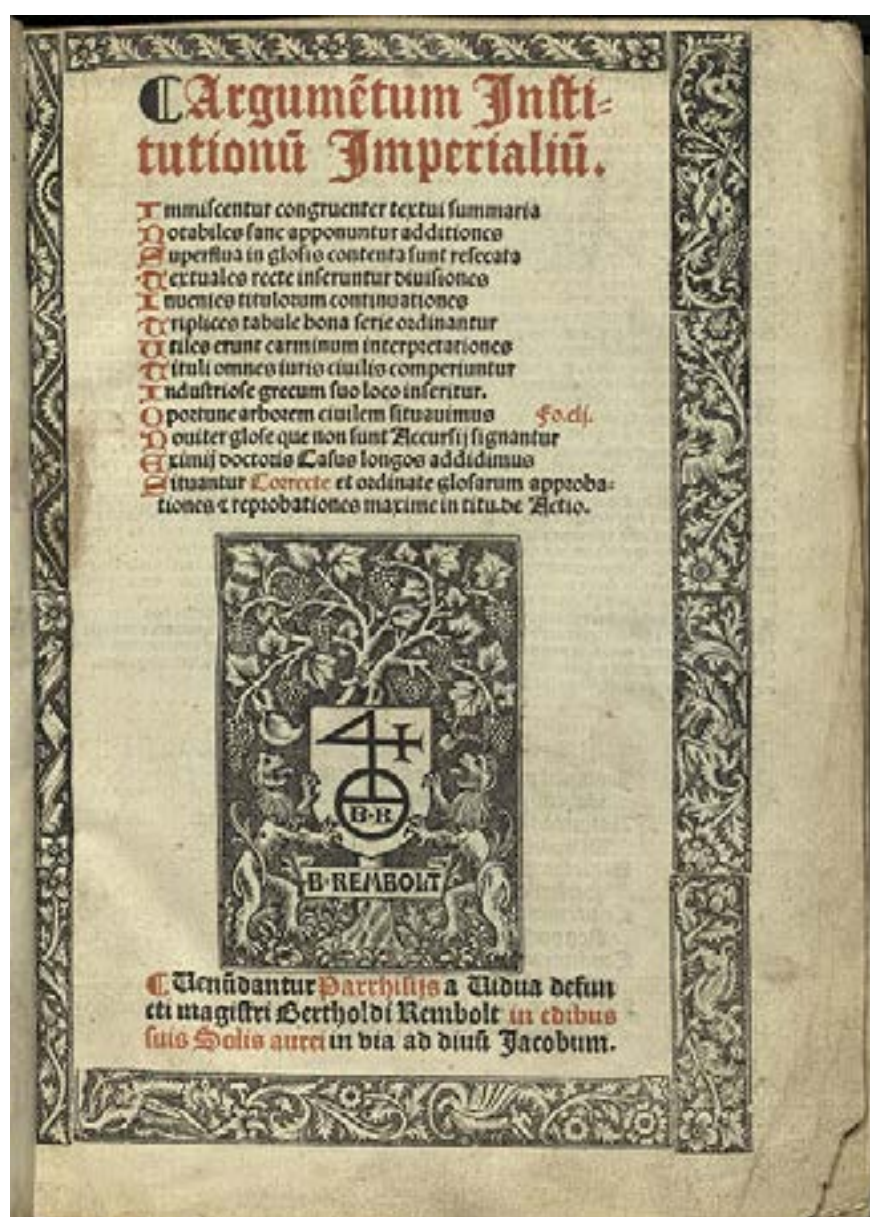 ¶Argumētum Insti-
tutionū Imperialiū.
Immiscentur congruenter textui summaria
Notabiles sane apponuntur additiones
Superflua in glosis contenta sunt resecata
Textuales recte inseruntur diuisiones
Inuenies titulorum continuationes
Triplices tabule bona serie ordinantur
Utiles erunt carminum interpretationes
Tituli omnes iuris ciuilis comperiuntur
Industriose grecum suo loco inseritur.
Oportune arborem ciuilem situauimus Fo.clj.
Nouiter glose que non sunt Accursij signantur
Eximij doctoris Casus longos addidimus
Situantur Correcte et ordinate glosarum approba-
tiones ⁊ reprobationes maxime in titu. de Actio.
B·R
B·REMBOLT
¶Uenūdantur Parrhisijs a Uidua defun
cti magistri Bertholdi Rembolt in edibus
suis Solis aurei in via ad diuū Jacobum.